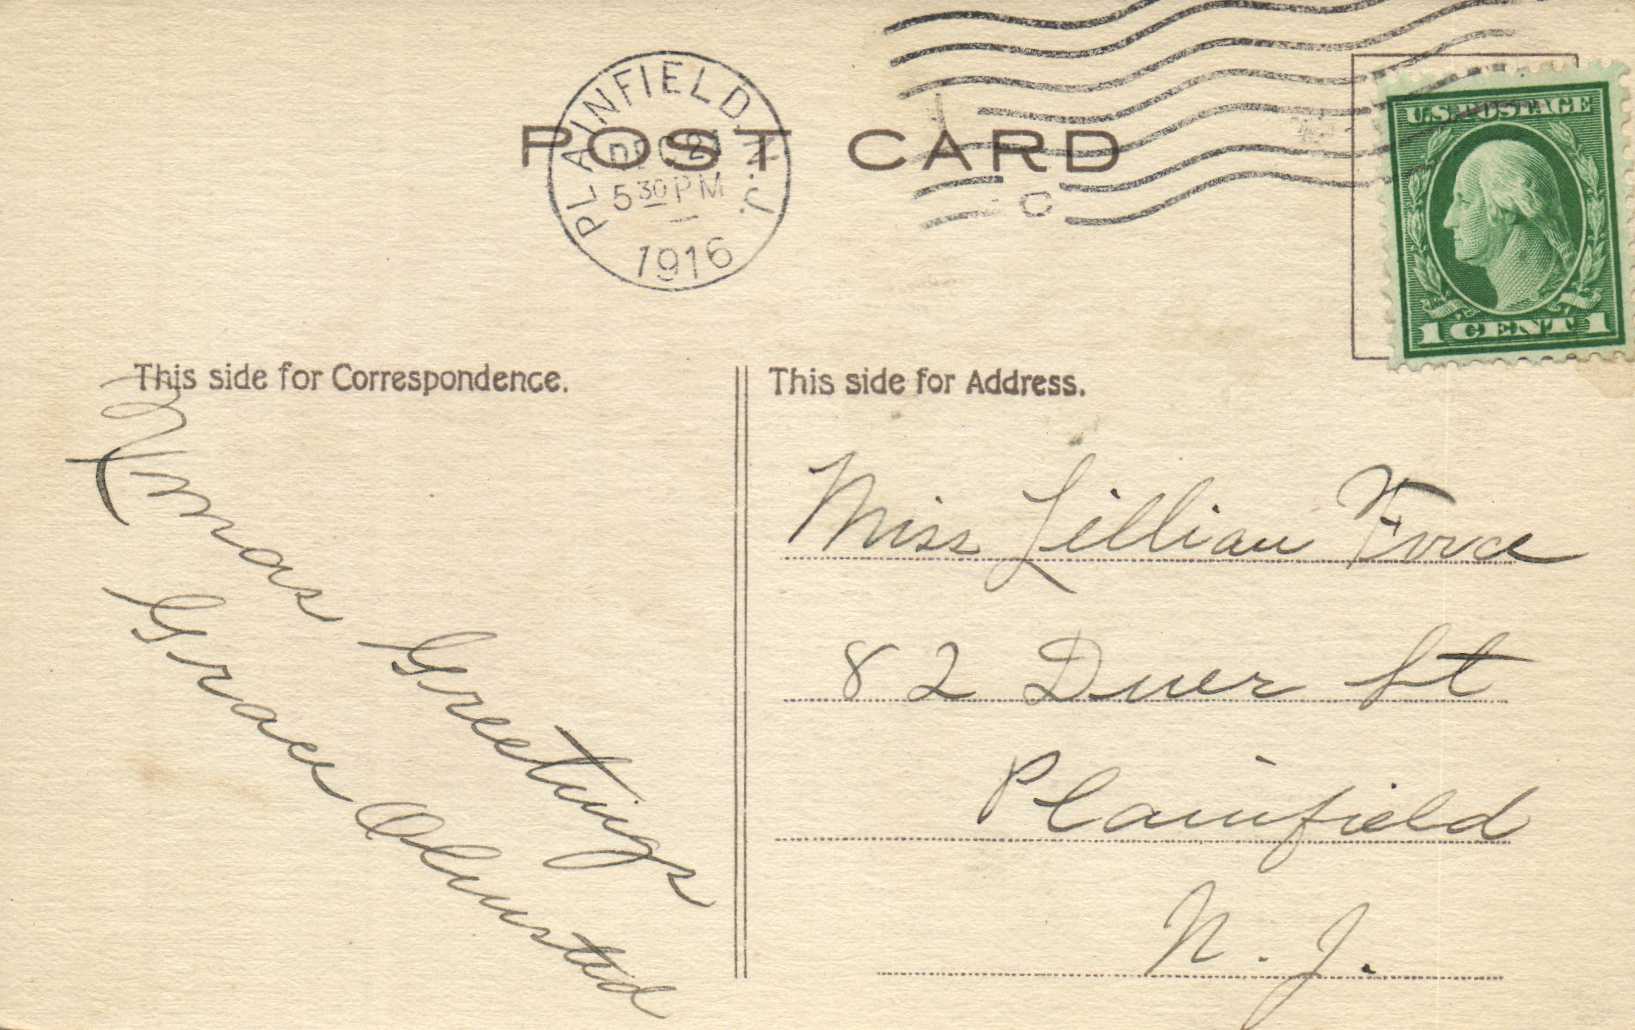 PLAINFIELD, N.J.
DEC 2
5 30 PM
1916
POST CARD
U.S. POSTAGE
1 CENT 1
This side for Correspondence.
This side for Address.
Xmas Greetings
Grace Olmsted
Miss Lillian Force
82 Duer St
Plainfield
N. J.